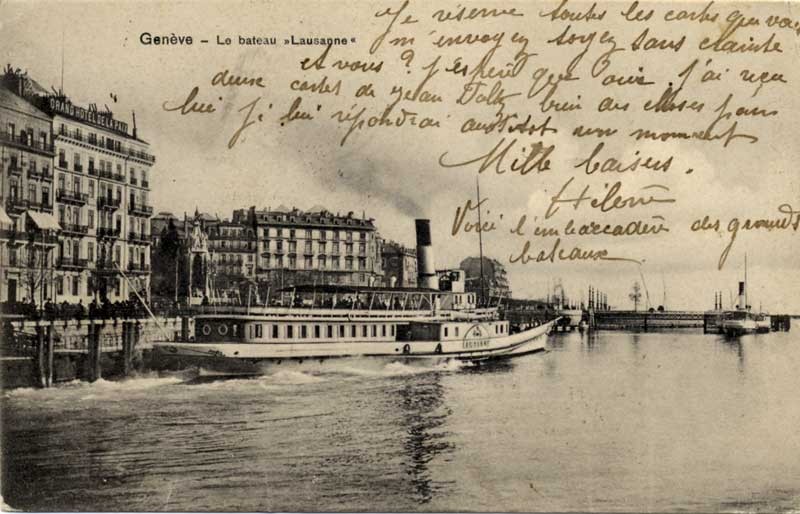 Genève – Le bateau »Lausanne«
Je réserve toutes les cartes que vous
m'envoyez soyez sans crainte
et vous? J'espère que oui. J'ai reçu
deux cartes de Jean Dites bien des choses pour
lui je lui répondrai aussitôt un moment
Mille baisers.
Hélène
Voici l'embarcadère des grands
bateaux
GRAND HÔTEL DE LA PAIX
LAUSANNE